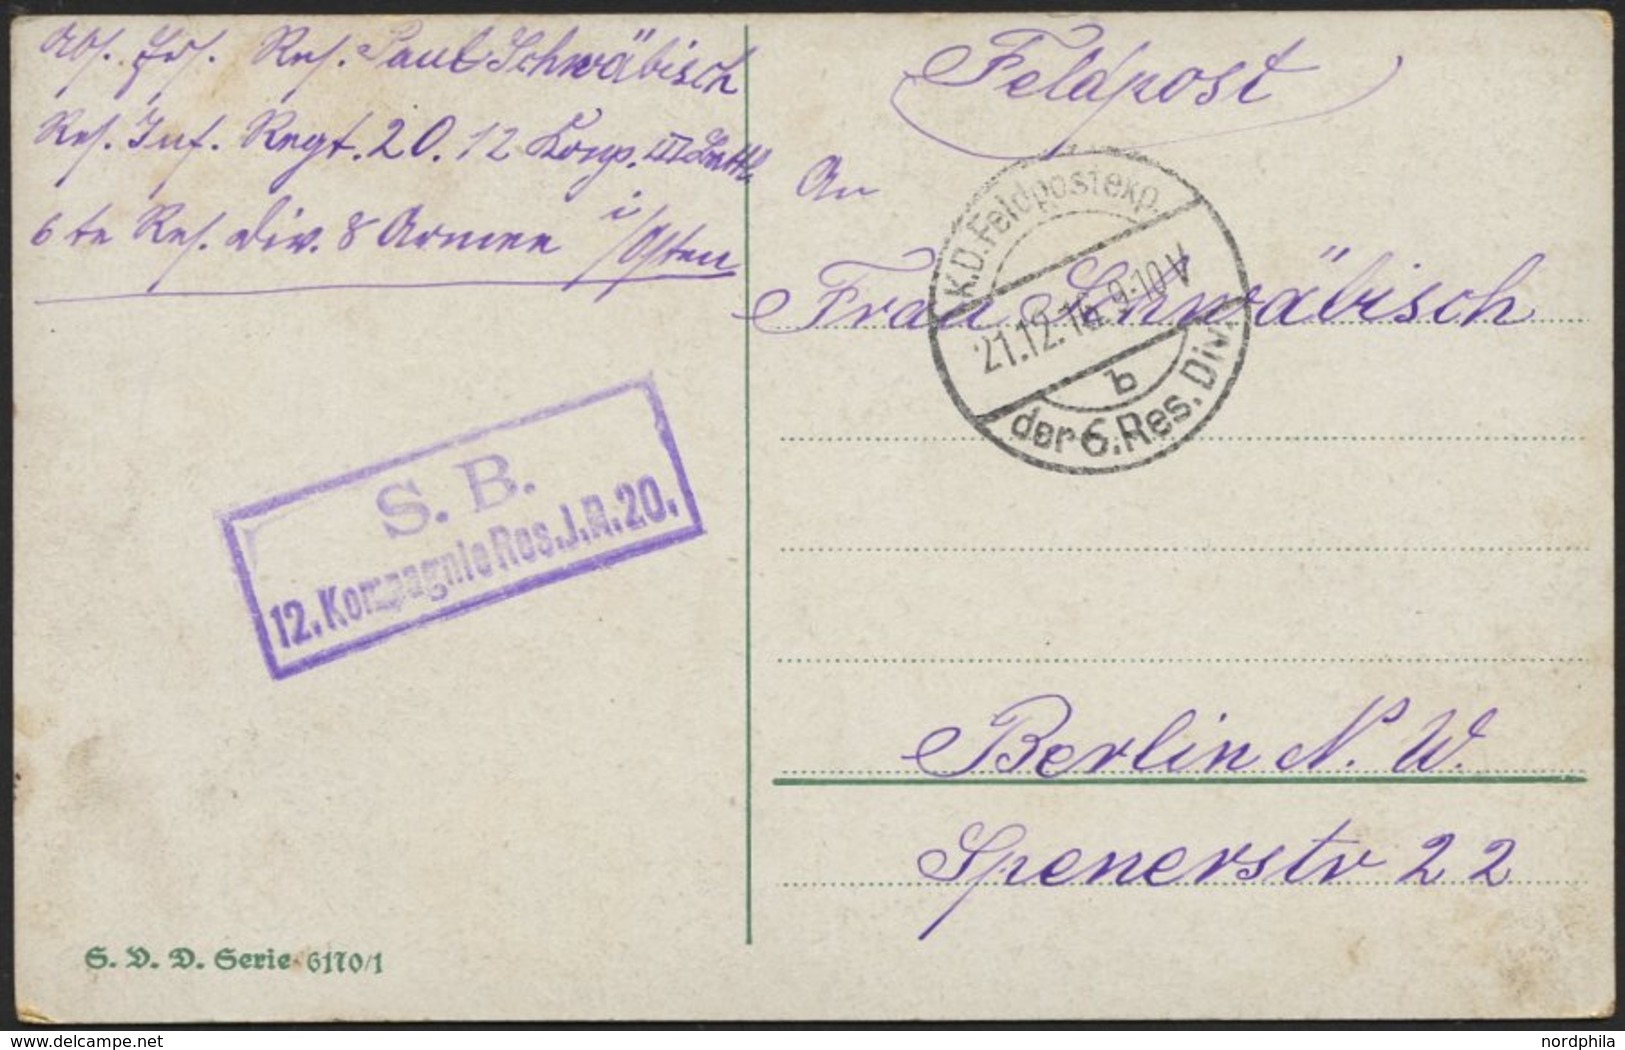 Abs. Ers. Res. Paul Schwäbisch
Res. Inf. Regt. 20. 12 Komp. III Batl.
6 te Res. Div. 8 Armee i/Osten
Feldpost
An
Frau Schwäbisch
Berlin N. W.
Spenerstr 22
K.D. Feldpostexp.
21.12. 9-10 V
b
der 6. Res. Div.
S. B.
12. Kompagnie Res. J. R. 20.
S. V. D. Serie 6170/1
nordphila